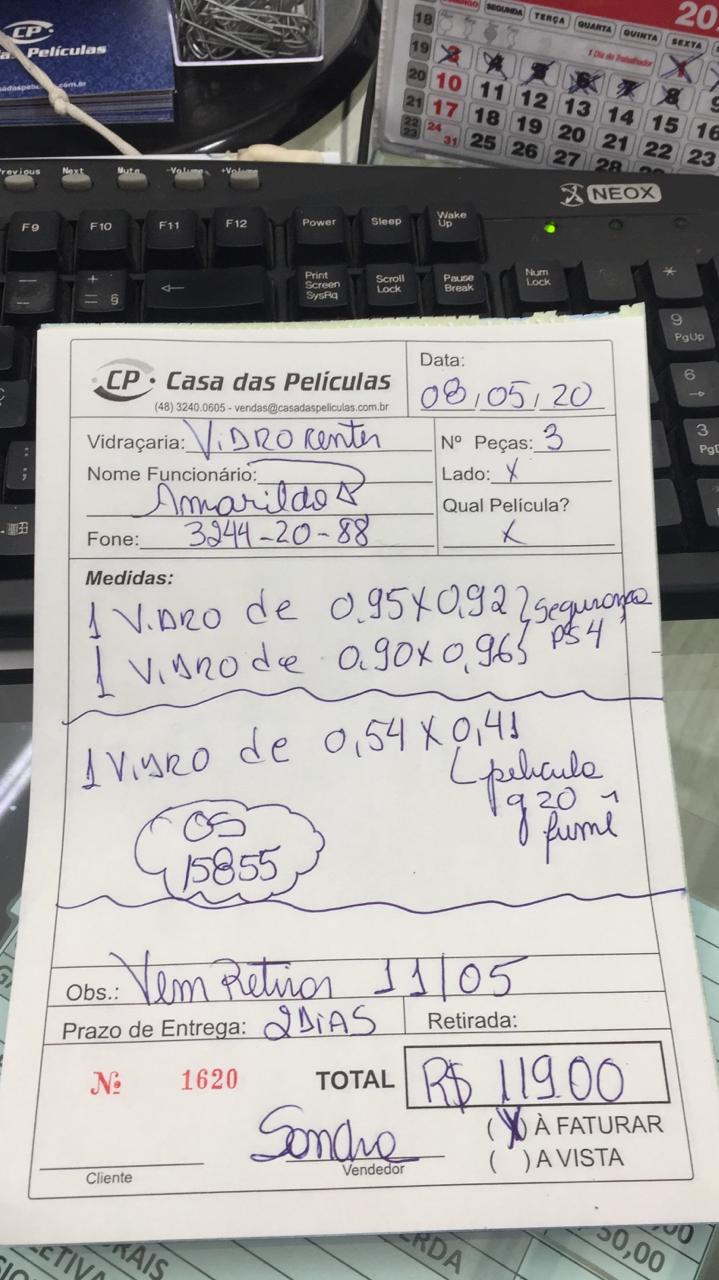 CP
as Películas
18 SEGUNDA TERÇA QUARTA QUINTA SEXTA
1 Dia do Trabalhador
19 3 4 5 6 7 8 9
20 10 11 12 13 14 15 16
21 17 18 19 20 21 22 23
22 23 24 31 25 26 27 28
Previous Next Mute -Volume +Volume
NEOX
F9 F10 F11 F12 Power Sleep Wake Up
Print Screen SysRq Scroll Lock Pause Break Num Lock *
9 PgUp
6
3
CP Casa das Películas
(48) 3240.0605 - vendas@casadaspeliculas.com.br
Data:
08/05/20
Vidraçaria: VIDROcenter
Nº Peças: 3
Nome Funcionário:
Amarildo
Lado: X
Qual Película?
X
Fone: 3244-20-88
Medidas:
1 VIDRO de 0,95X0,92 } Segurança
1 VIDRO de 0,90X0,96 } PS4
1 VIDRO de 0,54X0,41
película
g20
fumê
OS
15855
Obs.: Vem Retirar 11/05
Prazo de Entrega: 2DIAS Retirada:
Nº 1620 TOTAL R$ 119.00
(X) À FATURAR
Sandra
Cliente Vendedor ( ) A VISTA
50,00